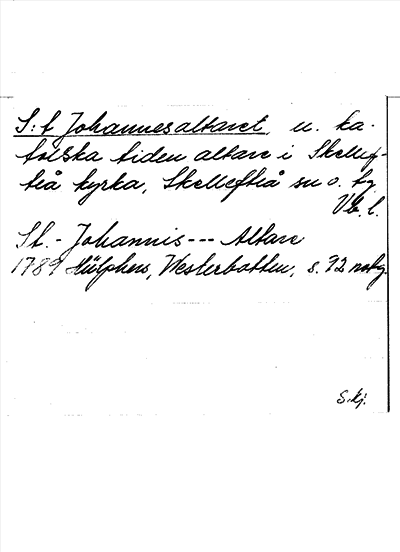 S:t Johannesaltaret, u. ka-
tolska tiden altare i Skellef-
teå kyrka, Skellefteå sn o. tg
Vb. l.
St. - Johannis --- Altare
1789 Hülphers, Westerbotten, s. 92 not g.
S.kj.